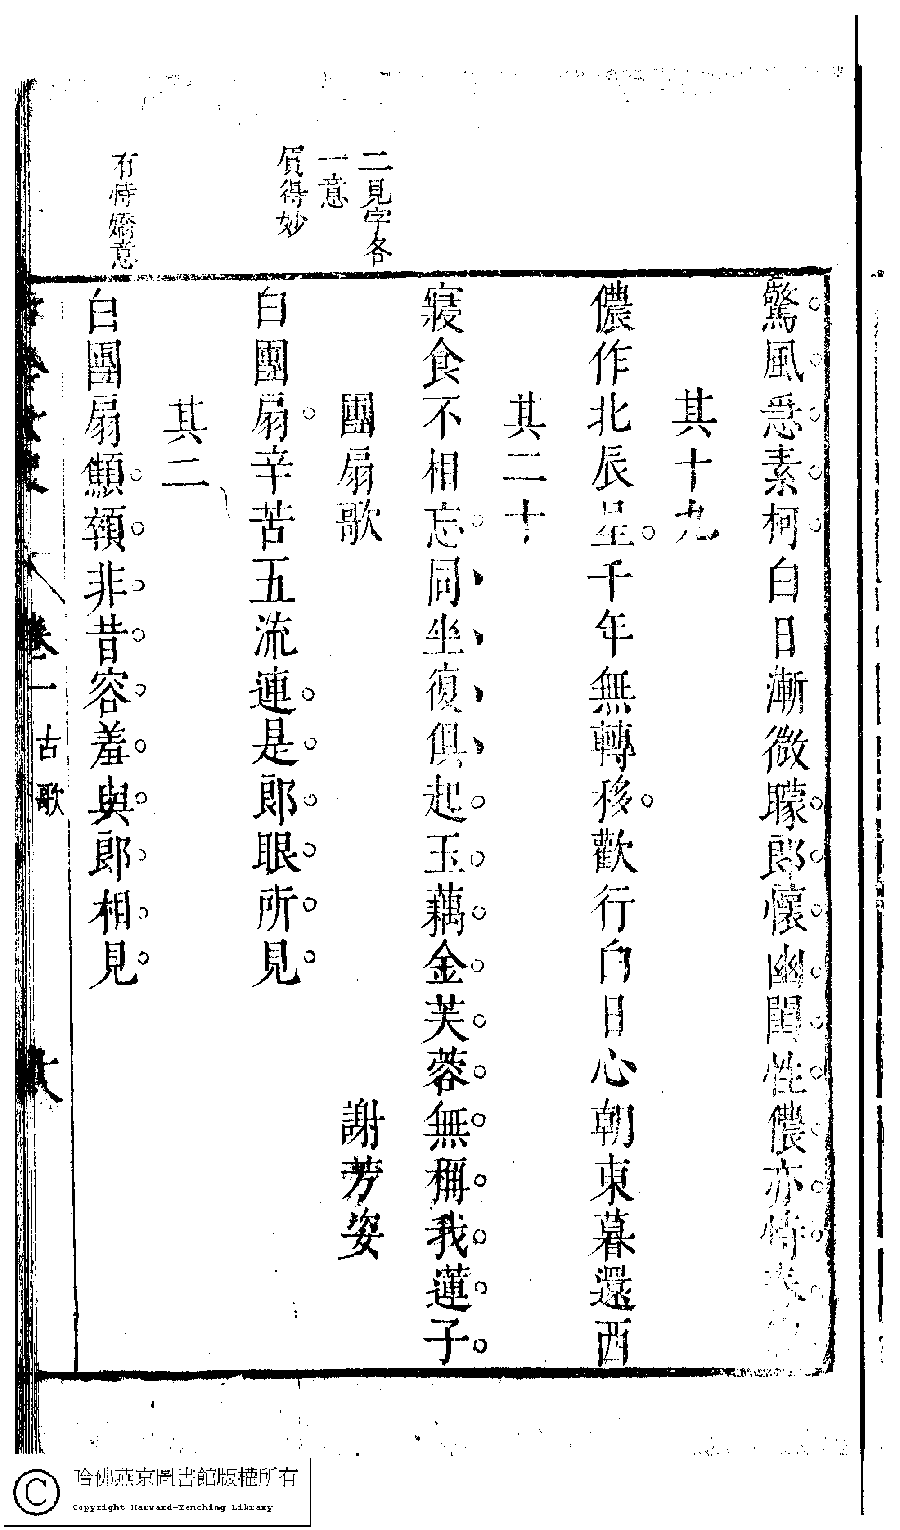 二見字各
一意
質得妙
有恃嬌意
驚風急素柯白日漸微矇郎懷幽閨性儂亦恃春
其十九
儂作北辰星千年無轉移歡行白日心朝東暮還西
其二十
寢食不相忘同坐復俱起玉藕金芙蓉無稱我蓮子
團扇歌
謝芳姿
白團扇辛苦五流連是郎眼所見
其二
白團扇顦顇非昔容羞與郎相見
卷一
古歌
哈佛燕京圖書館版權所有
Copyright Harvard-Yenching Library